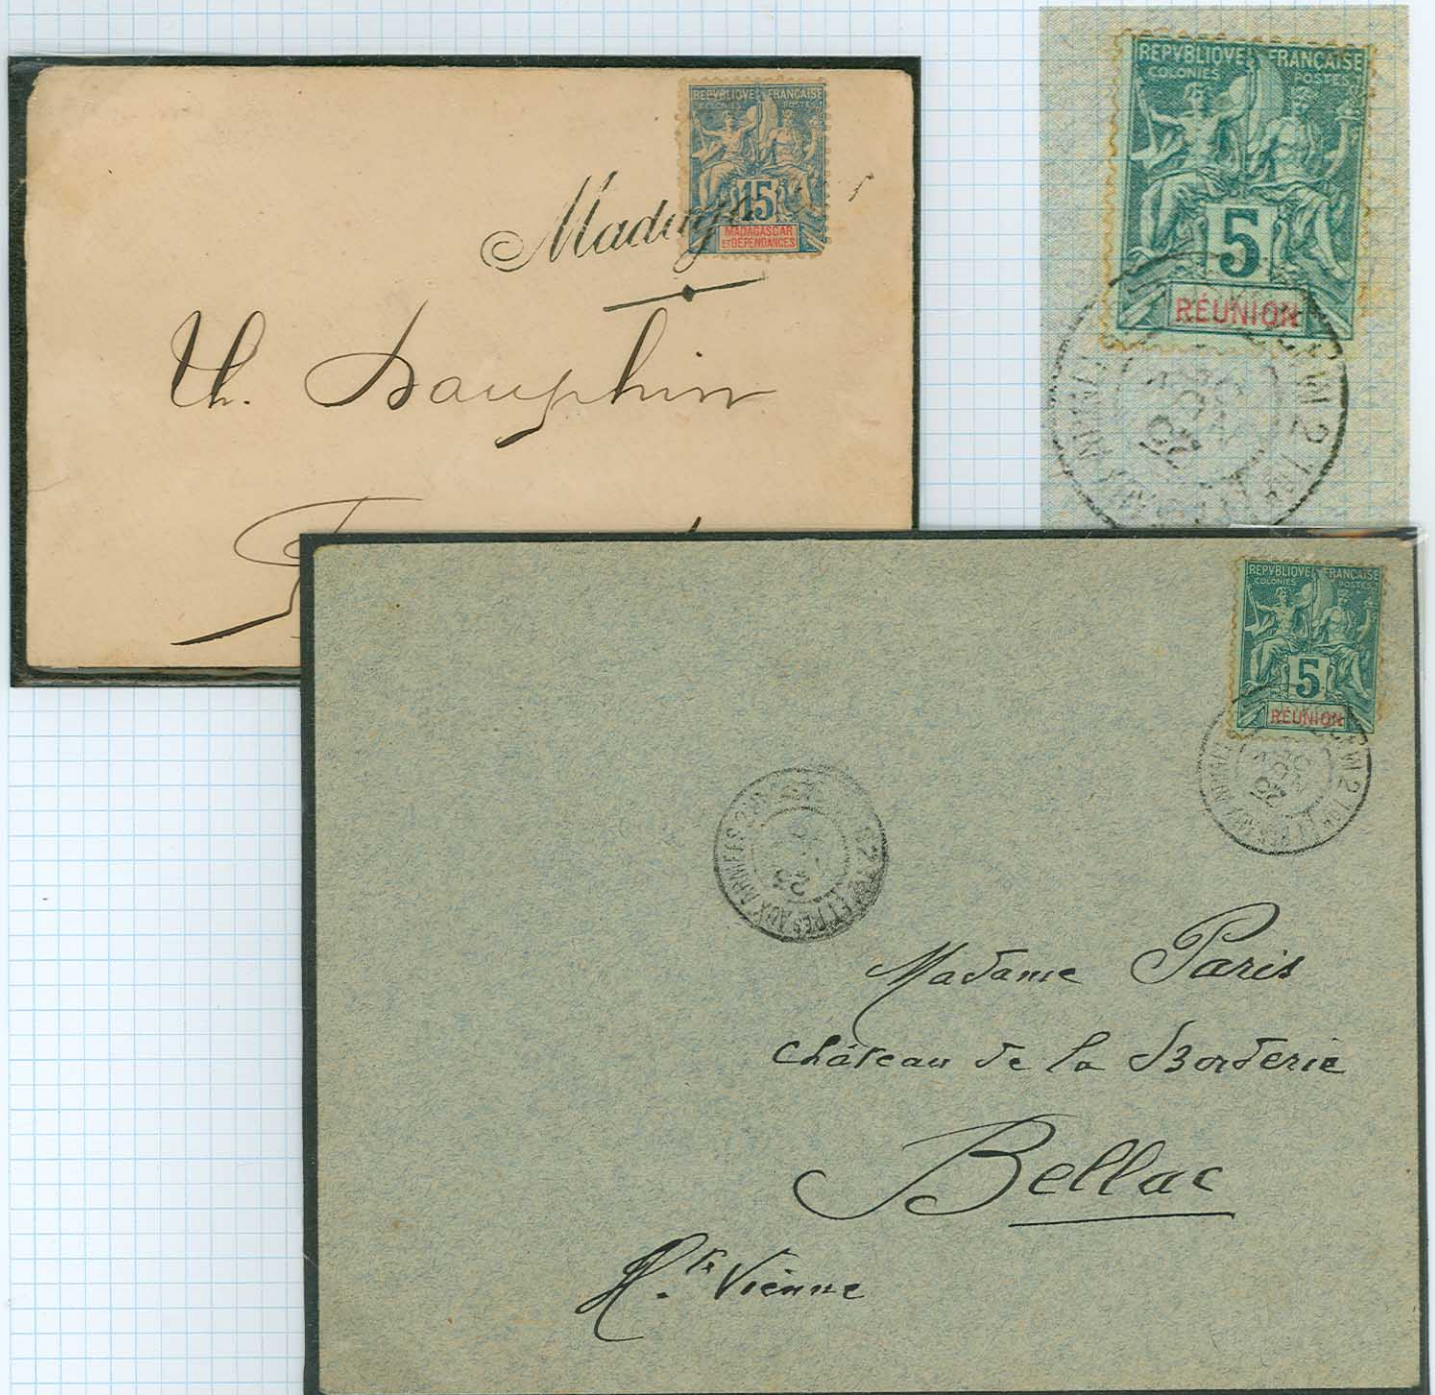 REPVBLIQVE FRANÇAISE
COLONIES POSTES
15
MADAGASCAR
ET DÉPENDANCES
Th. Dauphin
REPVBLIQVE FRANÇAISE
COLONIES POSTES
5
RÉUNION
REPVBLIQVE FRANÇAISE
COLONIES POSTES
5
RÉUNION
Madame Paris
Château de la Borderie
Bellac
Hte Vienne